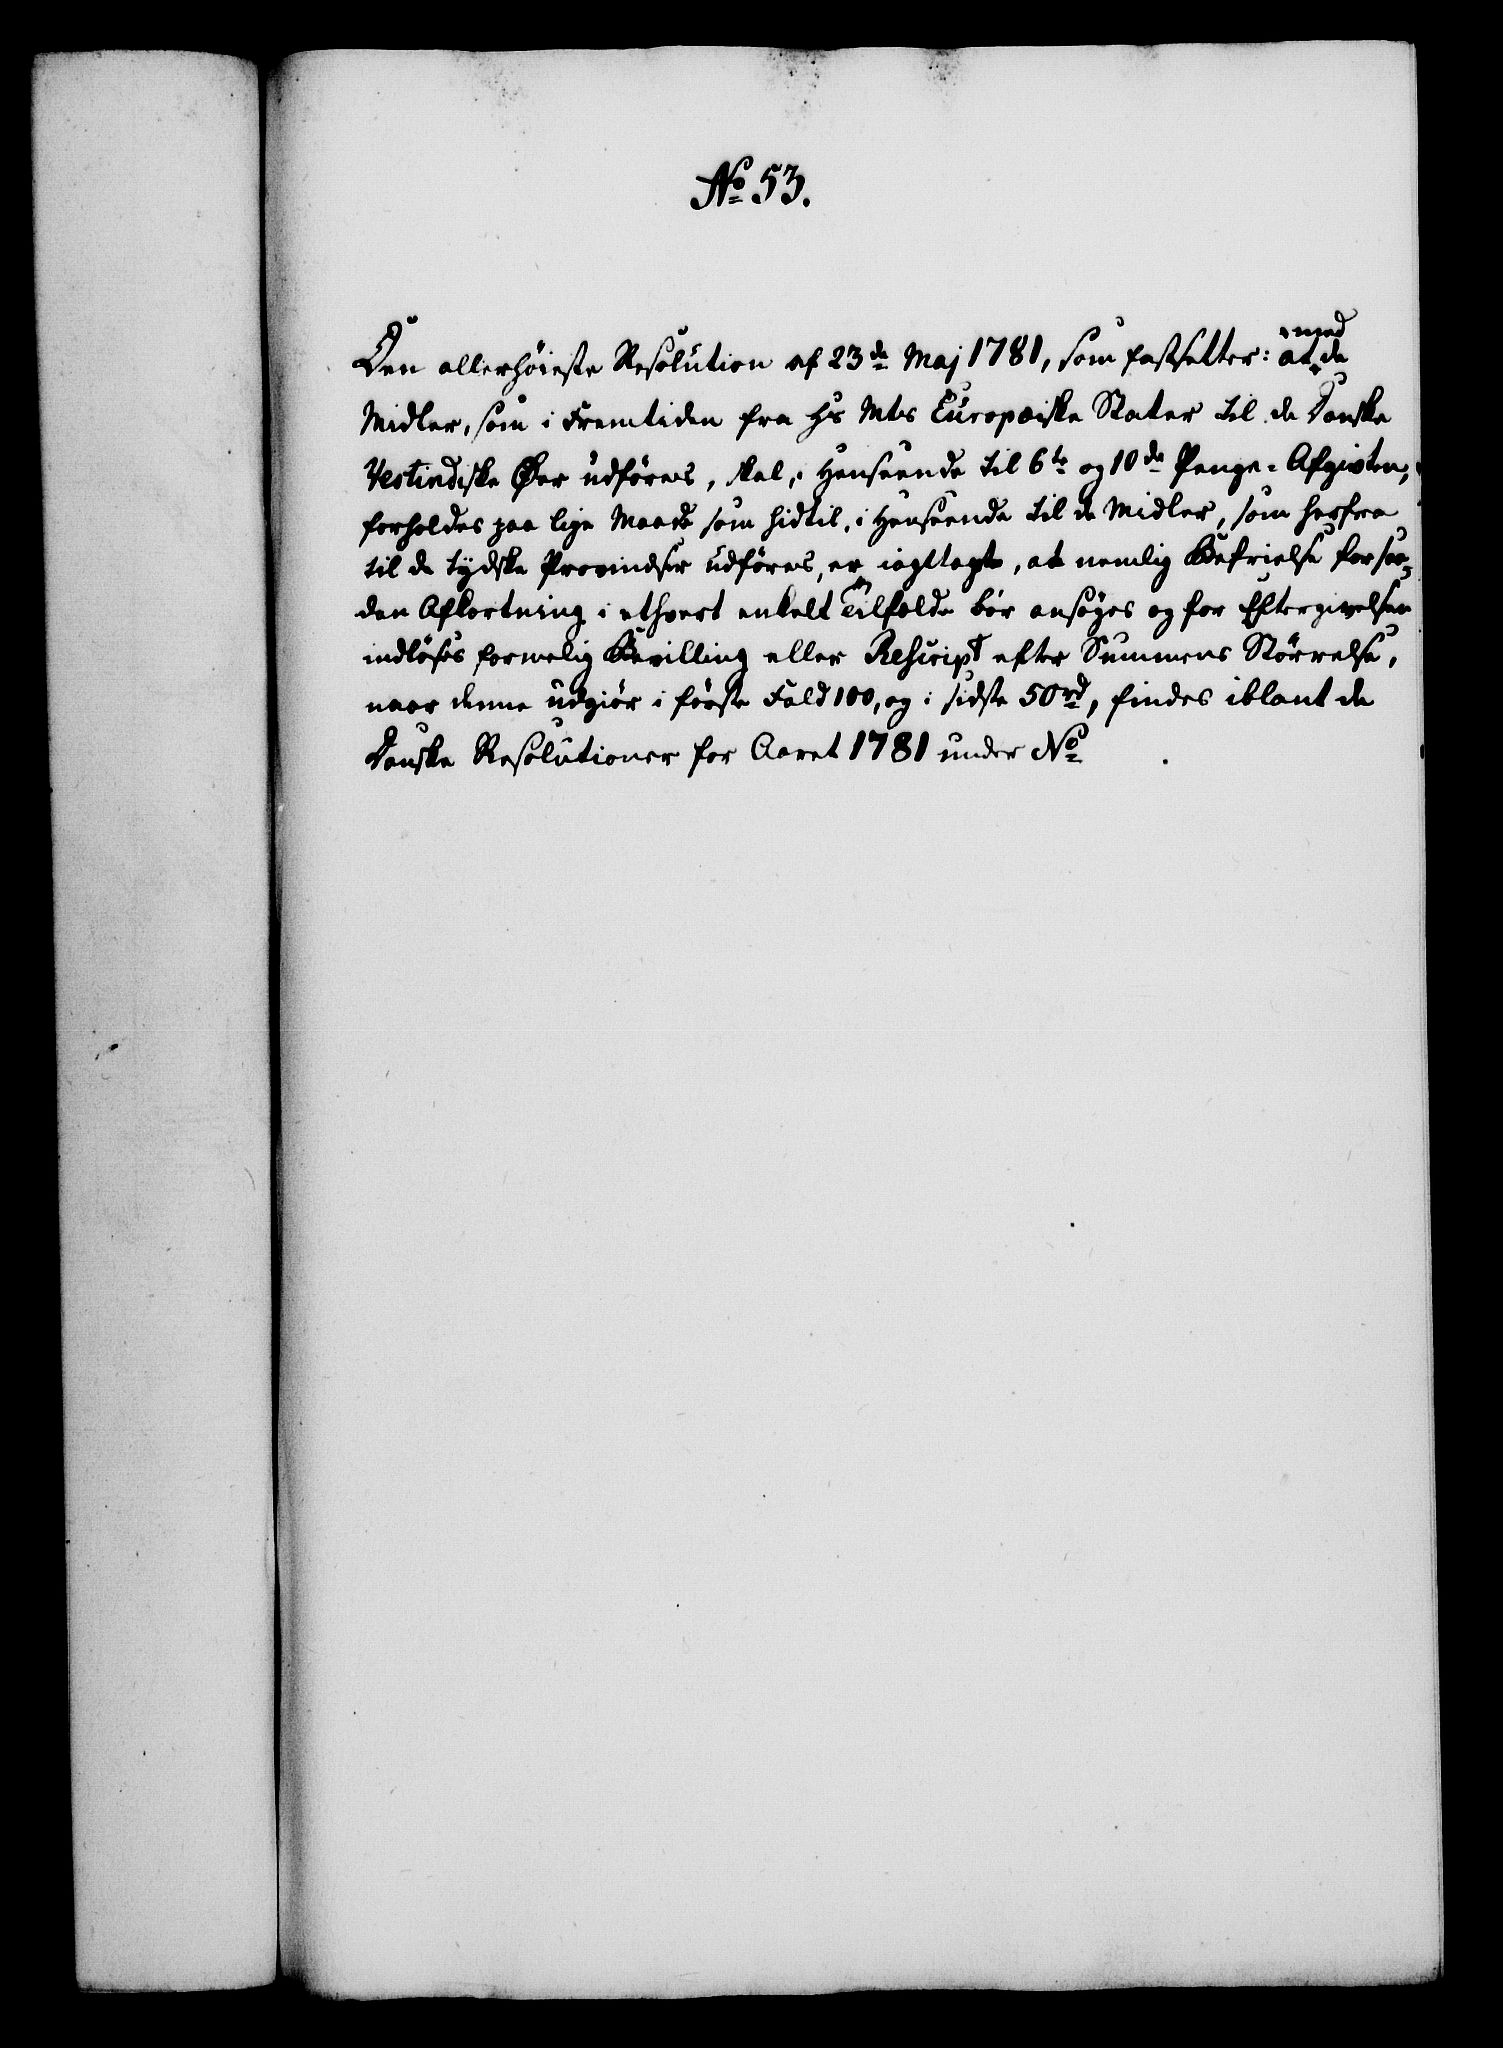 No 53.
med
Den allerhøieste Resolution af 23de Maj 1781, som fastsetter: at de
Midler, som i Fremtiden fra Hs Mts Europæiske Stater til de Danske
Vestindiske Øer udføres, skal, i Henseende til 6te og 10de Penge-Afgivten,
forholdes paa lige Maade som hidtil, i Henseende til de Midler, som herfra
til de tydske Provindser udføres, er iagttagt, at nemlig Befrielse for saa-
dan Afkortning i ethvert enkelt Tilfælde bør ansøges og for Eftergivelsen
indløses formelig Bevilling eller Rescript efter Summens Størrelse,
naar denne udgiør i første Fald 100, og i sidste 50 rd, findes iblant de
Danske Resolutioner for Aaret 1781 under No .